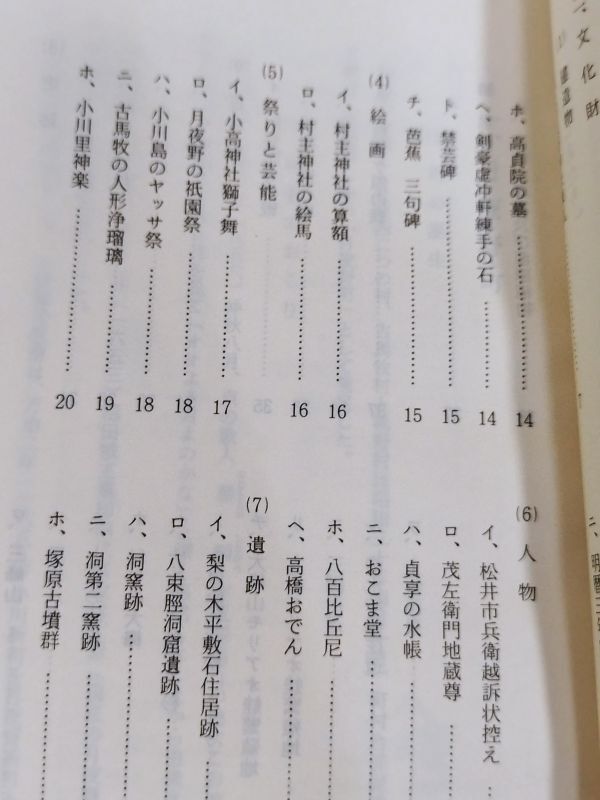 文化財
ホ、高貞院の墓 14
ヘ、剣豪虚冲軒練手の石 14
ト、禁芸碑 15
チ、芭蕉 三句碑 15
(4) 絵画
イ、村主神社の算額 16
ロ、村主神社の絵馬 16
(5) 祭りと芸能
イ、小高神社獅子舞 17
ロ、月夜野の祇園祭 18
ハ、小川島のヤッサ祭 18
ニ、古馬牧の人形浄瑠璃 19
ホ、小川里神楽 20
(6) 人物
イ、松井市兵衛越訴状控え
ロ、茂左衛門地蔵尊
ハ、貞享の水帳
ニ、おこま堂
ホ、八百比丘尼
ヘ、高橋おでん
(7) 遺跡
イ、梨の木平敷石住居跡
ロ、八束脛洞窟遺跡
ハ、洞窯跡
ニ、洞第二窯跡
ホ、塚原古墳群